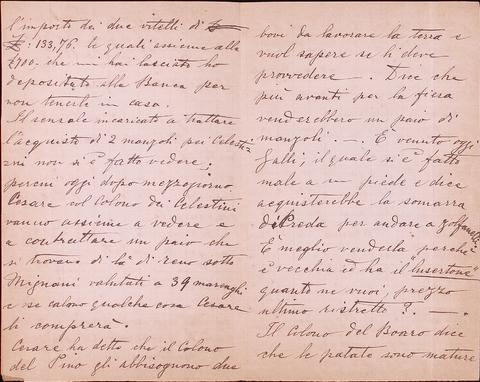 l'importo dei due vitelli di £
£: 133,76. le quali assieme alle
£700- che mi hai lasciato ho
depositato alla Banca per
non tenerle in casa.
Il sensale incaricato a trattare
l'acquisto di 2 manzoli pei Celesti-
ni non si è fatto vedere;
perciò oggi dopo mezzogiorno
Cesare col Colono dei Celestini
vanno assieme a vedere e
a contrattare un paio che
si trovano di là di reno sotto
Mignani valutati a 39 marenghi
e se calano qualche cosa Cesare
li comprerà.
Cesare ha detto che il Colono
del Pino gli abbisognono due
bovi da lavorare la terra e
vuol sapere se li deve
provvedere. Dice che
più avanti per la fiera
venderebbero un paio di
manzoli. — . È venuto oggi
Galli, il quale si è fatto
male a un piede e dice
acquisterebbe la somarra
di Preda per andare a Zolfanelli
È meglio venderla perchè
è vecchia ed ha il "lusertone"
quanto ne vuoi, prezzo
ultimo ristretto? — .
Il Colono del Boaro dice
che le patate sono mature